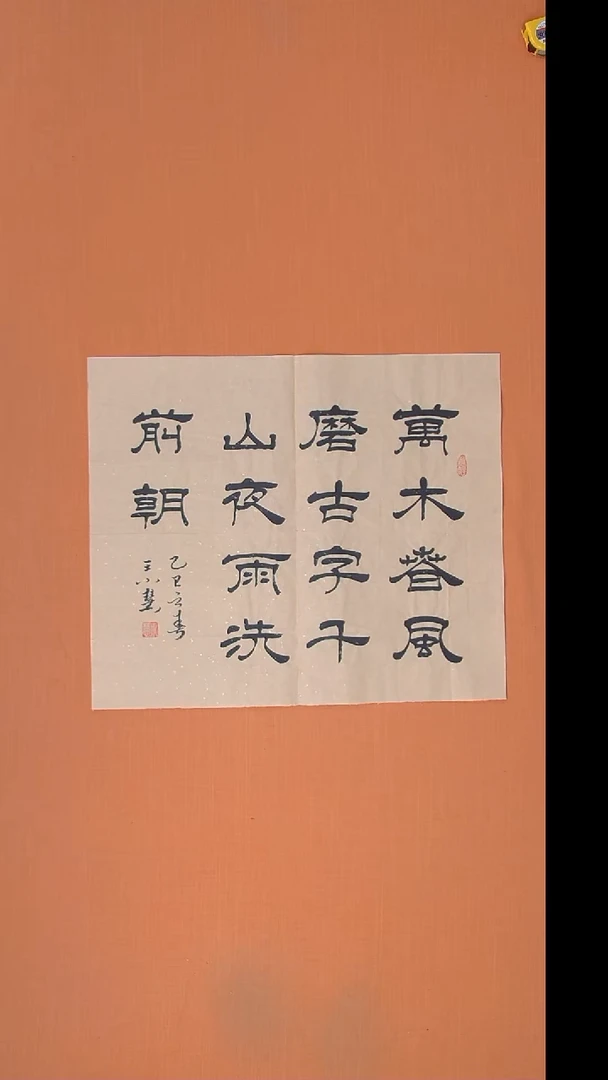 萬木春風
磨古字千
山夜雨洗
前朝
乙巳立春
王小慧